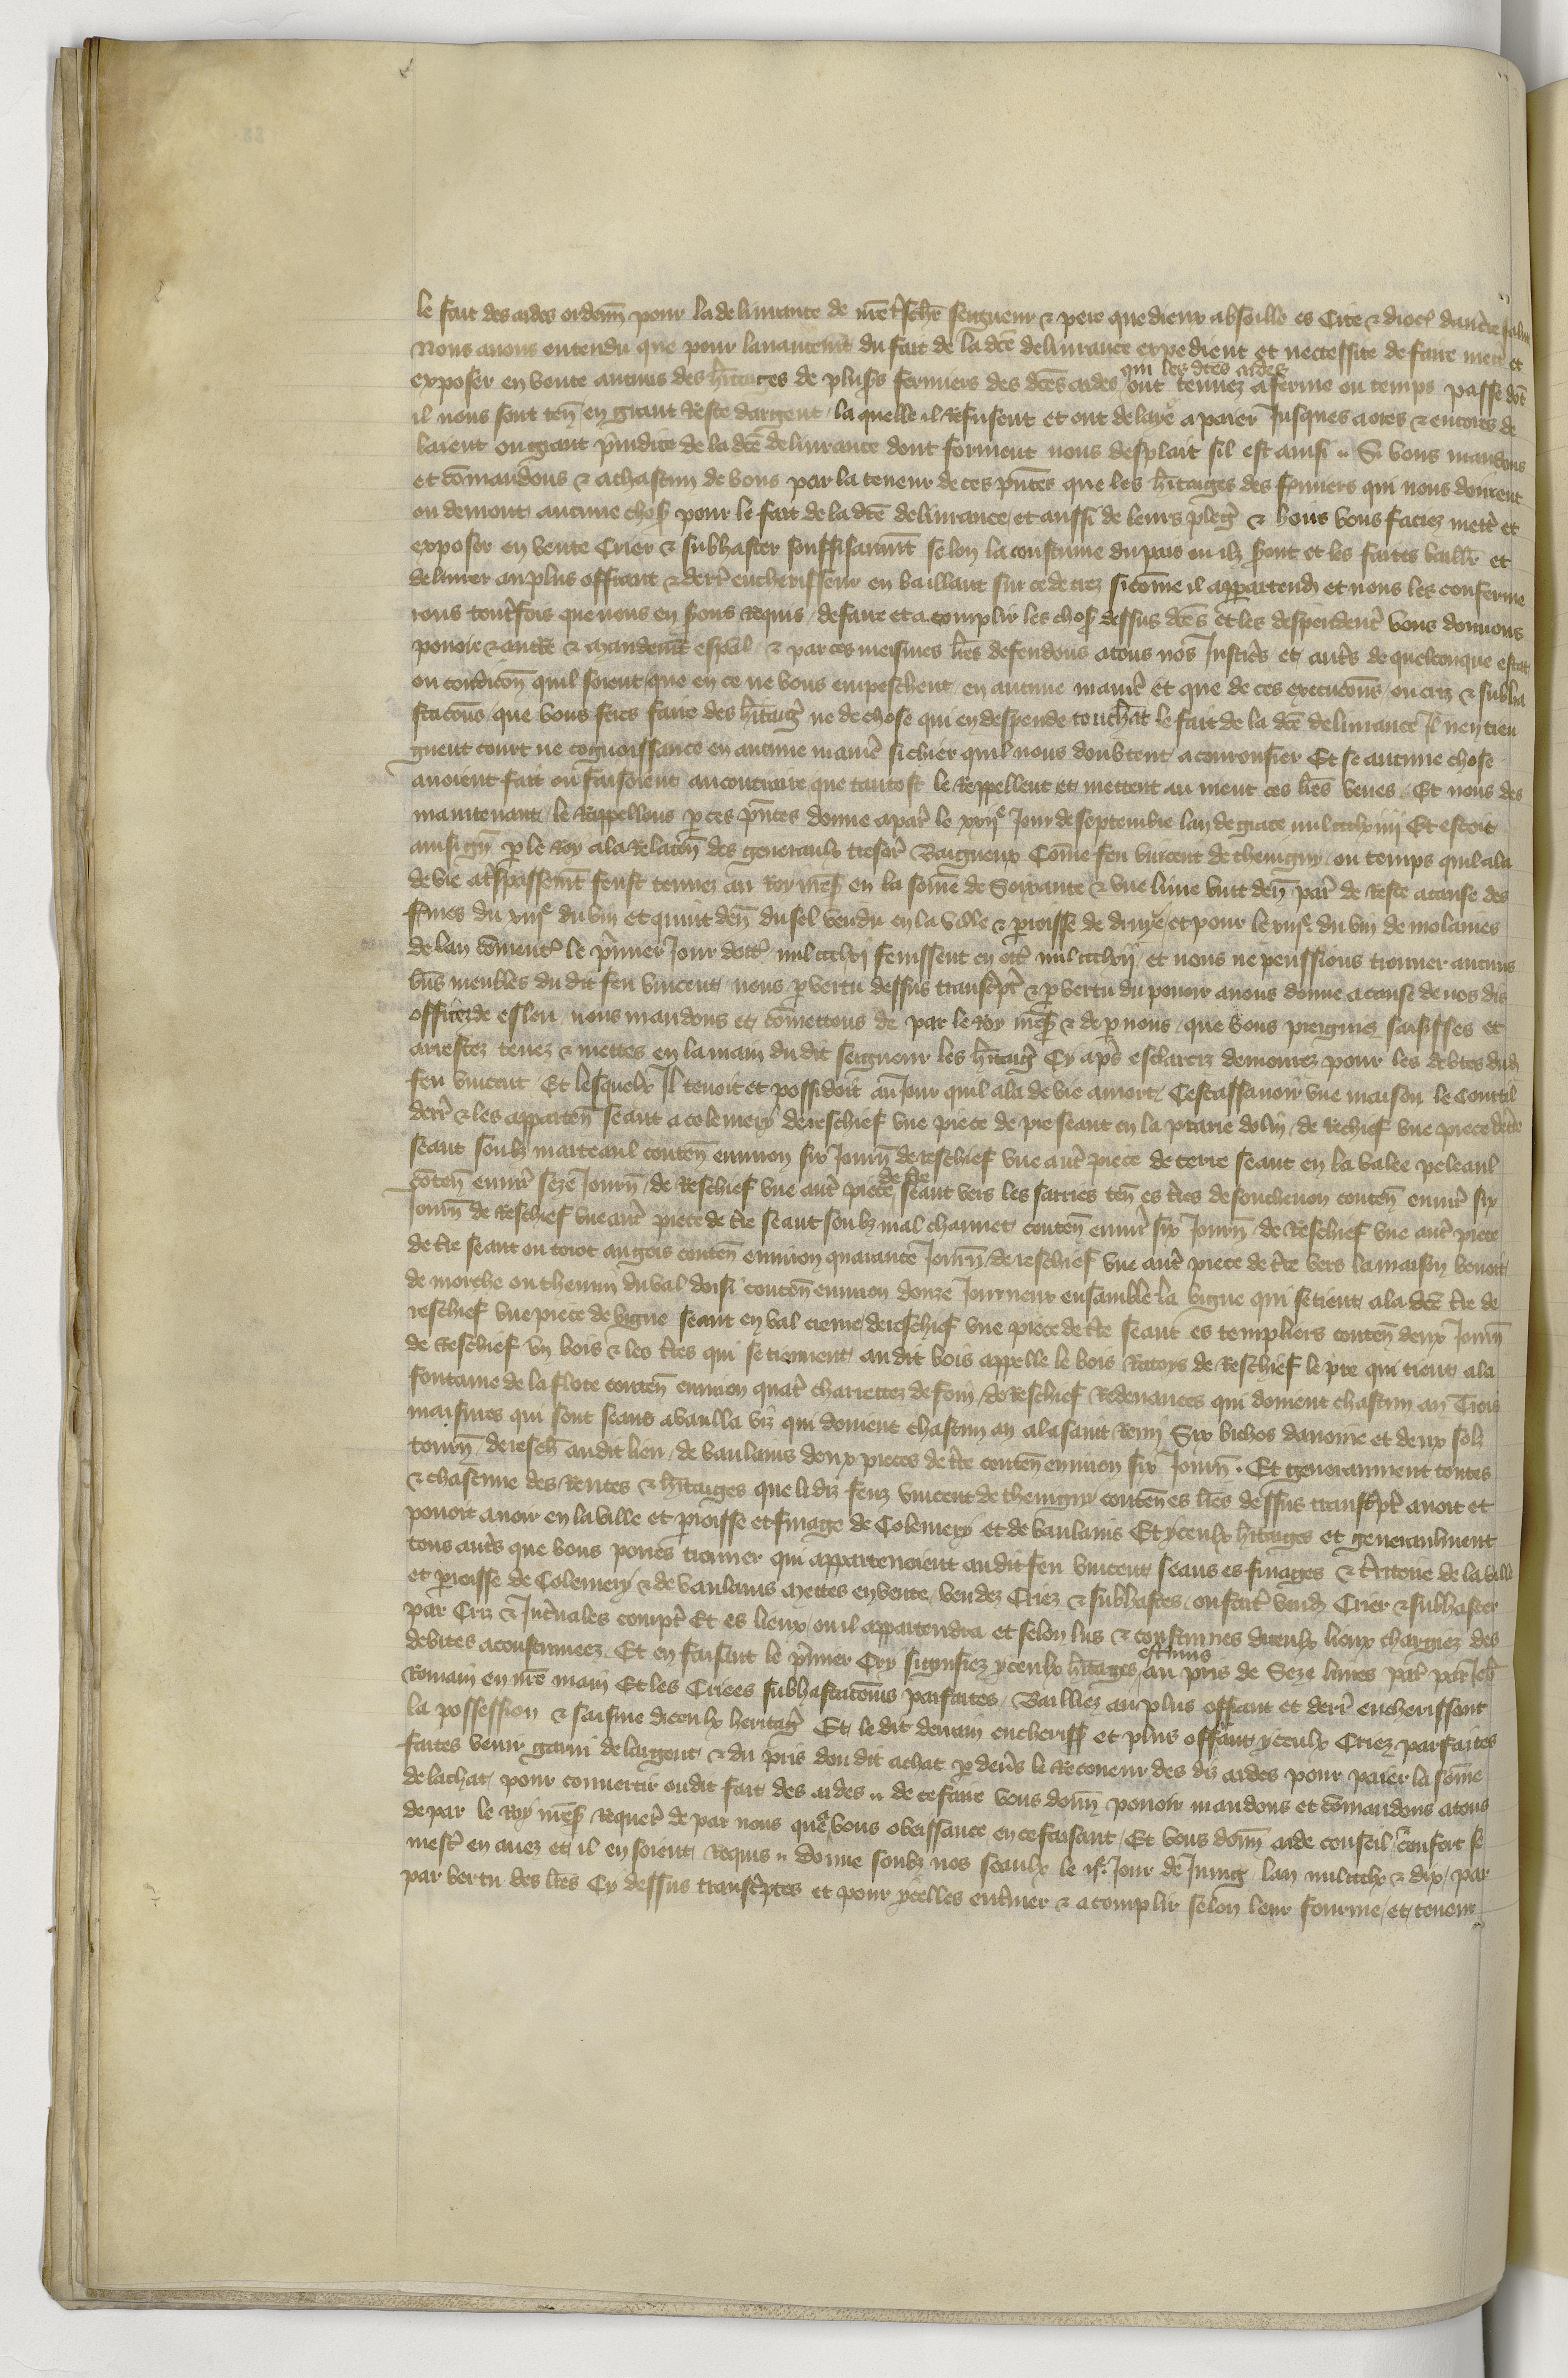 le fait des aides ordenn pour la deliurance de nre treschr seigneur & pere que dieux absoille es Cite & dioc daucerre salut
Nous auons entendu que pour lauancemt du fait de la dce deliurance expedient et neccessite de faire mett et
exposer en vente aucuns des hitages de plusrs fermiers des dces aides qui les dtes aides ont tenuez a ferme ou temps passe dot
il nous sont ten en grant Reste dargent / la quelle il Refusent et ont delaye a paier Jusques a ores & encores de
laient ou grant preiudice de la dce deliurance dont forment nous desplait sil est ainsi .. Si vous mandons
et comandons & a chascun de vous par la teneur de ces pntes que les hitaiges des fermiers qui nous doiuent
ou deuront aucune chose pour le fait de la dce deliurance / et aussi de leurs pleges & hons vous faciez mett et
exposer en vente Crier & subhaster souffisanmt selon la coustume du pais ou ilz sont et les faites baillr et
deliurer au plus offrant & derr encherisseur en baillant sur ce decrez si come il appartendr et nous les conferme
rons toutesfois que nous en serons Requis / de faire et acomplir les choses dessus dces et les despendent vous donnons
pouoir & auctte & mandemt espal / & par ces mesmes lres defendons a tous nos Justics et autrs de quelconque estat
ou condicon quil soient / que en ce ne vous empeschent / en aucune manie et que de ces execucons / ou criz & subha
stacons que vous feres faire des hitaigs ne de chose qui en despende touchat le fait de la dce deliurance Il nen tien
gnent court ne cognoissance en aucune manie si chier quil nous doubtent a courroussier Et se aucune chose
auoient fait ou faisoient au contraire que tantost le Rappellent et mettent au nient ces lres veues . Et nous des
maintenant / le Rappellons p ces pntes donne a paris le xxije Jour de septembre lan de grace mil ccclxiiij Et estoit
ainsi gn p le Roy a la Relacon des generaulx tresors Baigneux Come feu vincent de thenigny / ou temps quil ala
de vie a trespassemt feust tenuz au Roy mess en la some de Soixante & vne liure huit den par de Reste a cause des
fmes du xiije du vin et quint den du sel vendu en la ville & proisse de druye et pour le xiije du vin de molaines
de lan comenct le pmier Jour doct mil ccclxj fenissent en oct mil ccclxij / et nous ne peussions trouuer aucuns
bns meubles du dit feu vincent / nous p vertu dessus transcpt & p vertu du pouoir a nous donne a cause de nos dis
offices de esleu / nous mandons et comettons de par le Roy mess & de p nous / que vous preignies saisisses et
arrestez tenez & mettes en la main du dit seigneur les hitaigs Cy aps esclarciz demourez pour les debtes dud
feu vincent Et lesquelx Il tenoit et possidoit au Jour quil ala de vie a mort / Cestassauoir vne maison le Courtil
derr & les apparten seant a colemery dereschief vne piece de pre seant en la prarie dolin / de Rechief vne piece de tre
seant soubz marteaul conten enuiron six Journ dereschief vne autr piece de terre seant en la valee peleaul
conten enuir seze Journ / de Reschief vne autr piece de tre seant vers les sarries ten es tres de soucheuon conten enuir six
Journ de Reschief vne autr piece de tre seant soubz mal charnet conten enuir six Journ / de Reschief vne autr piece
de tre seant ou torot angois conten enuiron quarante Journ / dereschief vne autr piece de tre vers la maison benoit
de morche ou chemin du val doisi conten enuiron douze Journeux ensamble la vigne qui se tient a la dce tre de
reschief vne piece de vigne seant en val creuse dereschief vne piece de tre seant es templiers conten deux Journ
de Reschief vn bois & les tres qui se tiennent au dit bois appelle le bois Ratoys de Reschief le pre qui tient a la
fontaine de la flote conten enuiron quatr charrettes de foin / de Reschief Redeuances qui doiuent chascun an Trois
maisures qui sont seans a vaulla viz qui doiuent chascun an a la saint Remi Six bichos dauoine et deux solz
tourn / deresch au dit lieu / de vaulanis deux pieces de tre conten enuiron six Journ . Et generanment toutes
& chascune des Rentes & hitaiges que li diz feuz vincent de thenigny conten es lres dessus transcpt auoit et
pouoit auoir en la ville et proisse et finage de Colemery et de vaulanis Et yceulx hitaiges et generaulment
tous autrs que vous poures trouuer qui appartenoient au dit feu vincent seans es finages & tritoire de la ville
et proisse de Colemery & de vaulanis mettes en vente / vendez Criez & subhastes / ou fact vendr Crier & subhaster
par Criz & Interuales compet Et es lieux / ou il appartendra et selon lus & coustumes diceulx lieux chargiez des
debites acoustumeez . Et en faisant le pmier Cry signifiez yceulx hitages estimus au pris de Seze liures par par Jeh
Romain en nre main Et les Criees subhastacons parfaites / Bailliez au plus offrant et derr encherissant
la possession & saisine diceulx heritag Et le dit derrain encheriss et plus offrant yceulx Criez parfaites
faites venir garni de largent & du pris dou dit achat p deurs le Receueur des dis aides pour paier la some
de lachat / pour conuertir ou dit fait des aides .. de ce faire vous donn pouoir mandons et comandons a tous
de par le Roy mess Requer de par nous que a vous obeissance en ce faisant / Et vous donn aide conseil confort se
mestr en auez et il en soient Requis .. donne soubz nos seaulx le ije Jour de Juing lan mil ccclx & dix / par
par vertu des lres Cy dessus transcptes et pour ycelles entiner & acomplir selon leur fourme / et teneur